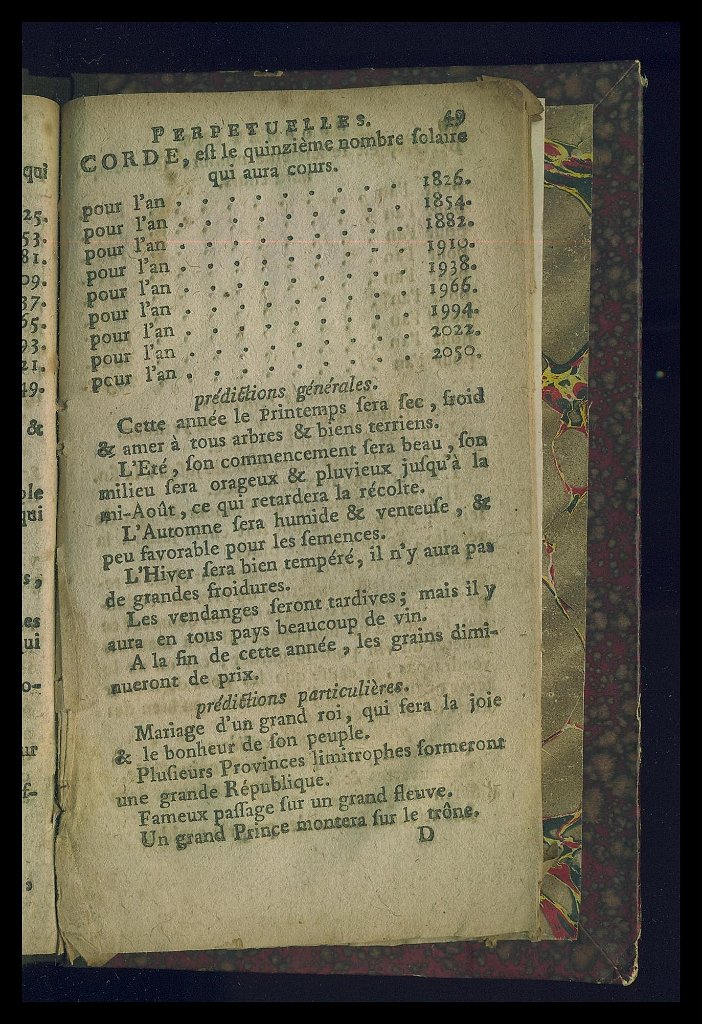 PERPETUELLES. 49
CORDE, eſt le quinzième nombre ſolaire
qui aura cours.
pour l'an . . . . . . . . . 1826.
pour l'an . . . . . . . . . 1854.
pour l'an . . . . . . . . . 1882.
pour l'an . . . . . . . . . 1910.
pour l'an . . . . . . . . . 1938.
pour l'an . . . . . . . . . 1966.
pour l'an . . . . . . . . . 1994.
pour l'an . . . . . . . . . 2022.
pour l'an . . . . . . . . . 2050.
prédictions générales.
Cette année le Printemps ſera ſec, froid
& amer à tous arbres & biens terriens.
L'Eté, ſon commencement ſera beau, ſon
milieu ſera orageux & pluvieux juſqu'à la
mi-Août, ce qui retardera la récolte.
L'Automne ſera humide & venteuſe, &
peu favorable pour les ſemences.
L'Hiver ſera bien tempéré, il n'y aura pas
de grandes froidures.
Les vendanges ſeront tardives; mais il y
aura en tous pays beaucoup de vin.
A la fin de cette année, les grains dimi-
nueront de prix.
prédictions particulières.
Mariage d'un grand roi, qui ſera la joie
& le bonheur de ſon peuple.
Pluſieurs Provinces limitrophes formeront
une grande République.
Fameux paſſage ſur un grand fleuve.
Un grand Prince montera ſur le trône.
D